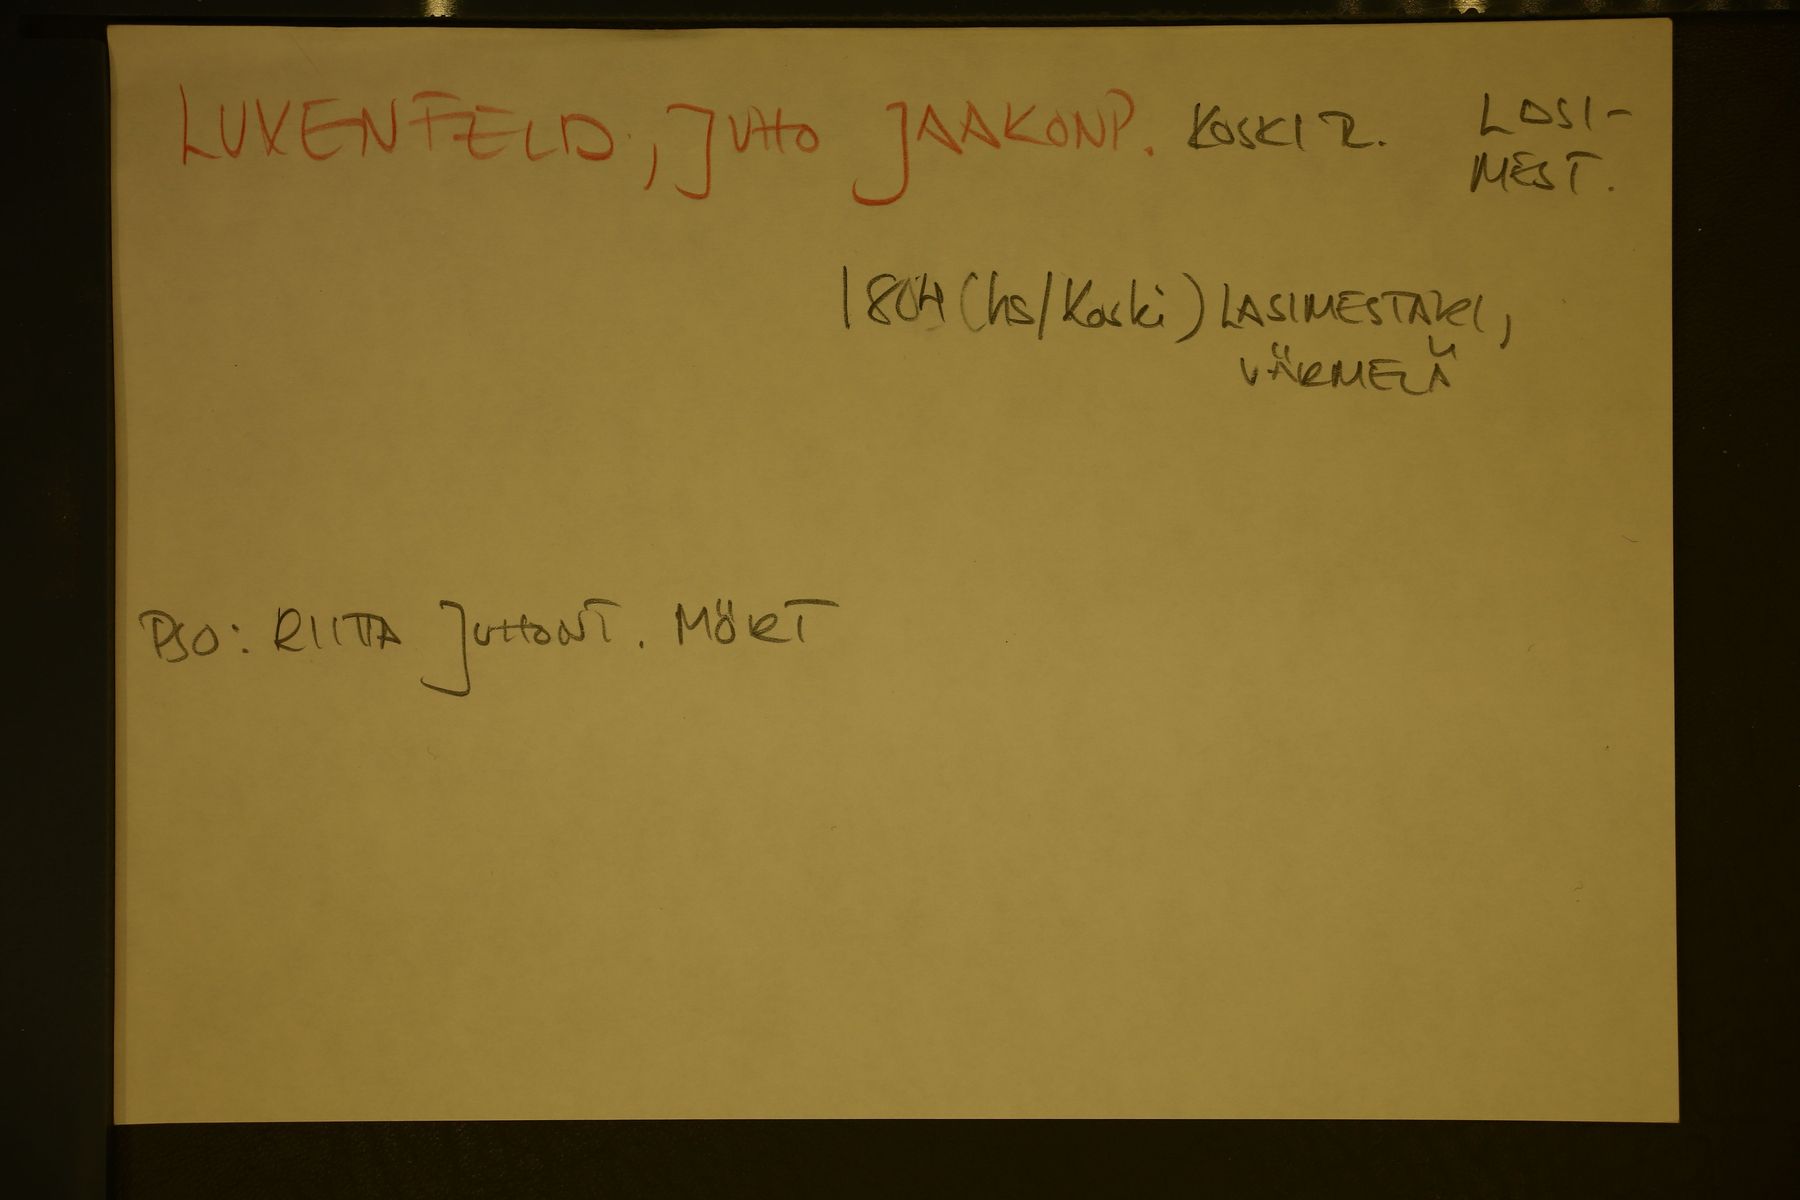 LUXENFELD, JUHO JAAKONP. KOSKI TL. LASI-
MEST.
1804 (hs/Koski) LASIMESTARI,
VÄRMELÄ
PSO: RIITTA JUHONT. MÖRT